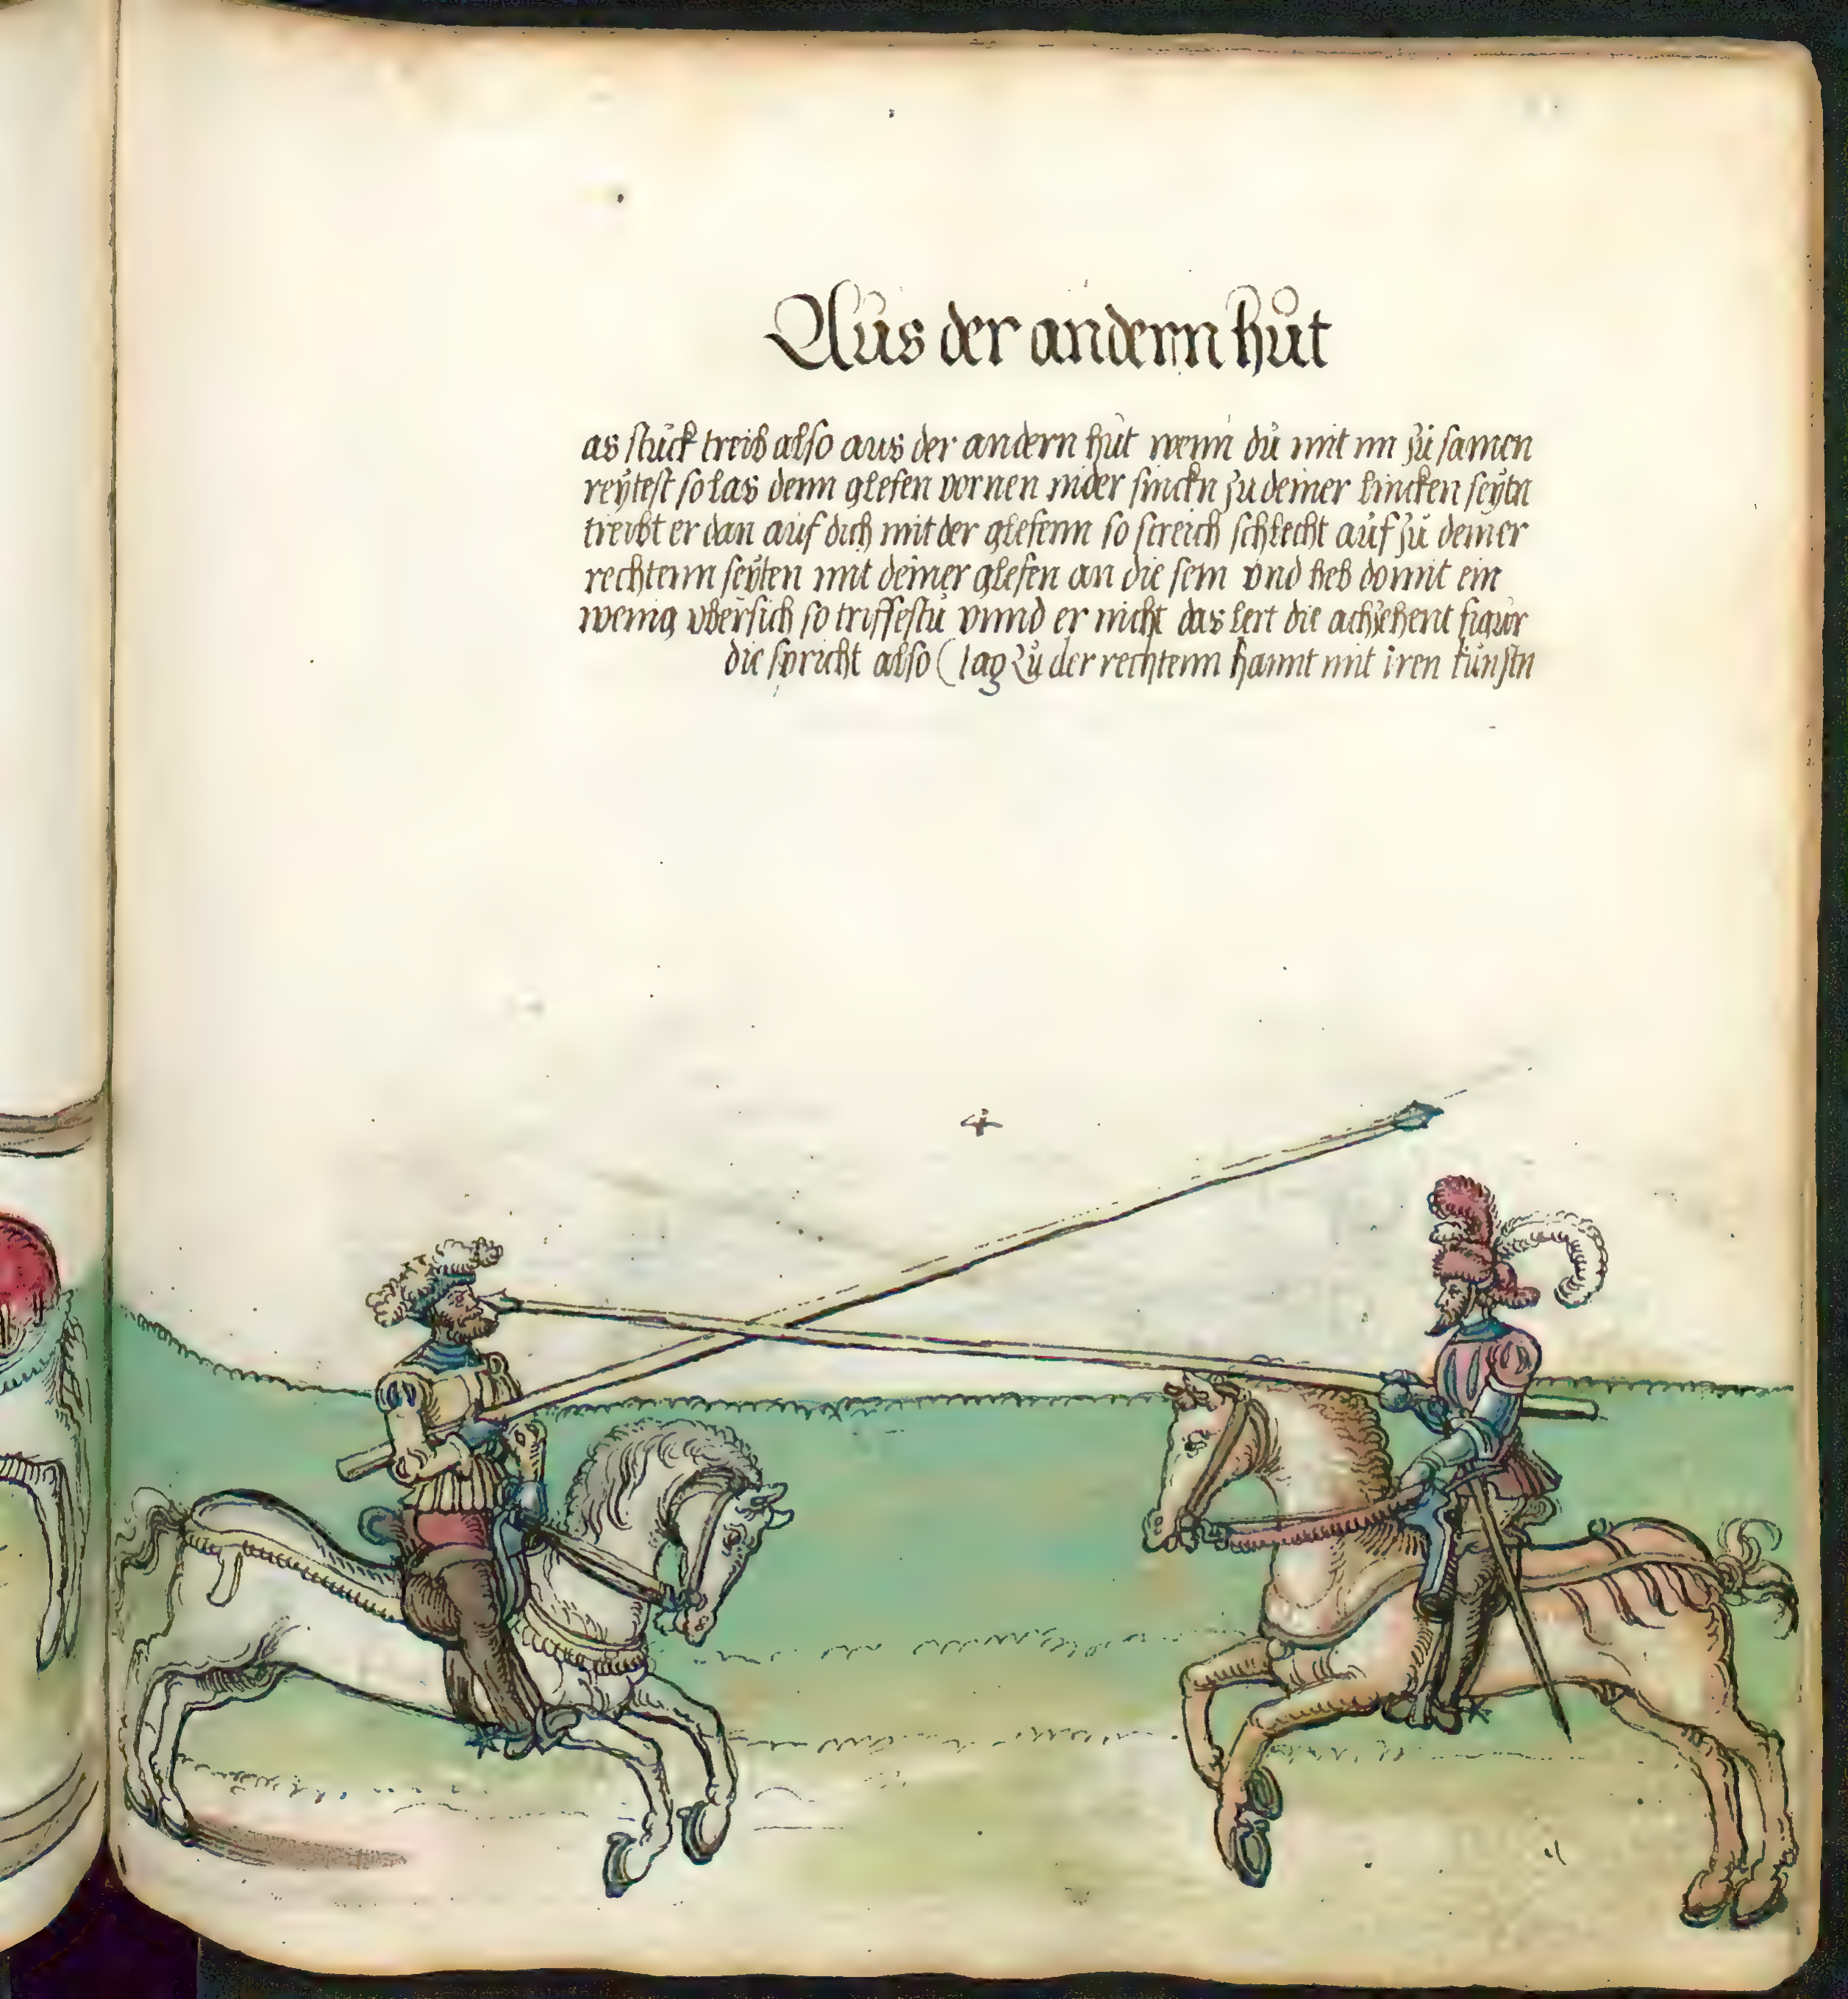 Aus der andernn hůt
as stuck treib also aus der andern hut wenn dů mit im zů samen
reÿtest so las denn glefen vornen nider sinckn zu deiner lincken seÿtn
treibt er dan auf dich mit der glefenn so streich schlecht auf zů deiner
rechtenn seÿten mit deiner glefen an die sein vnd heb domit ein
wenig vbersich so triffestu vnnd er nicht das lert die achzehent figůr
die spricht also Jag Zů der rechtenn hannt mit iren kůnstn